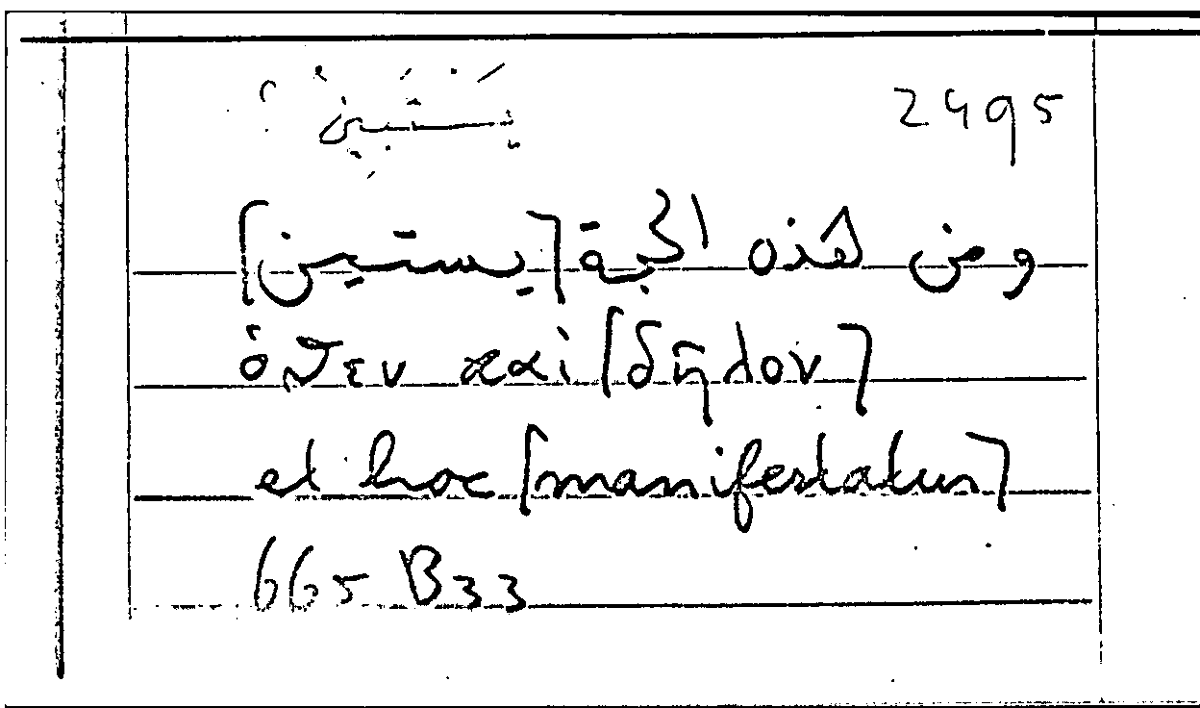 يستبين 2495
ومن هذه الجهة [يستبين]
ὅθεν καὶ [δῆλον]
et hoc [manifestatur]
665 B33